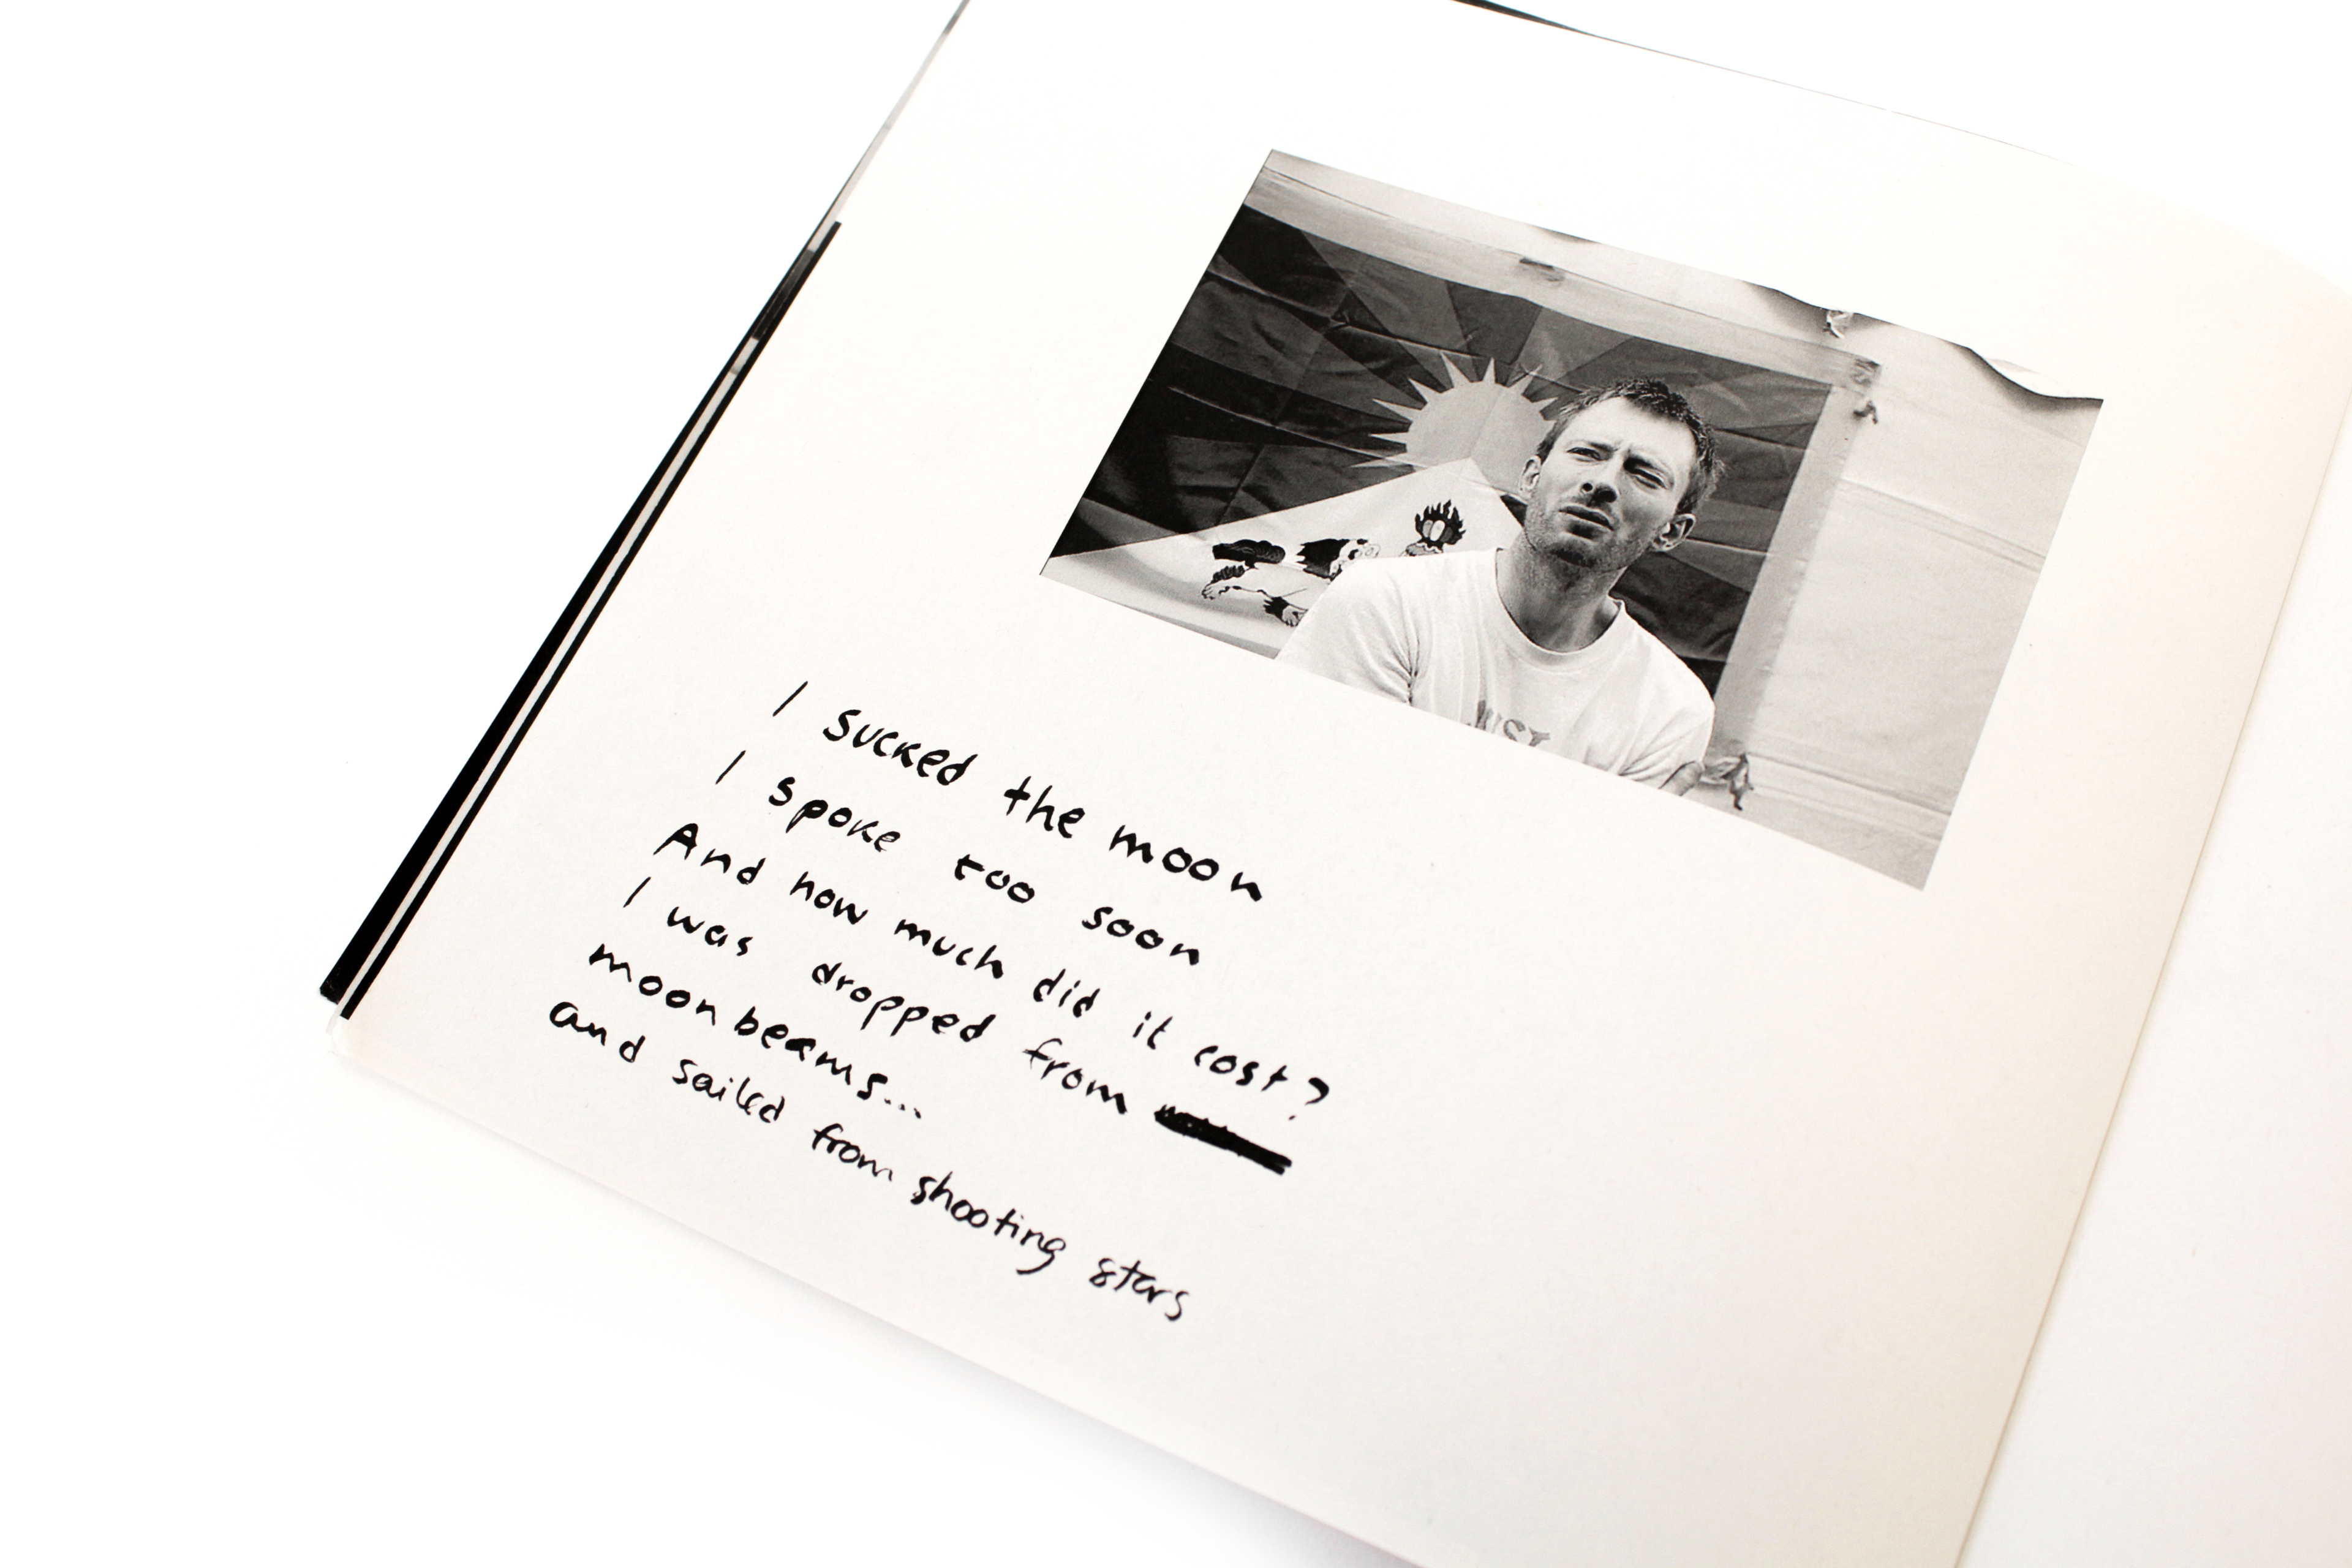 I sucked the moon
I spoke too soon
And how much did it cost?
I was dropped from
moonbeams...
and sailed from shooting stars